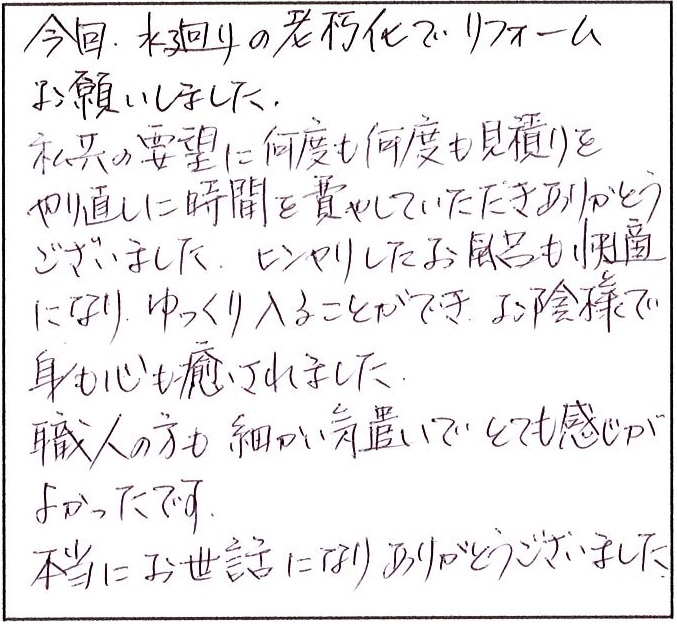 今回、水廻りの老朽化でリフォーム
お願いしました.
私共の要望に何度も何度も見積りを
やり直しに時間を費やしていただきありがとう
ございました. ヒンヤリしたお風呂も快適
になり、ゆっくり入ることができ、お陰様で
身も心も癒されました.
職人の方も細かい気遣いでとても感じが
よかったです.
本当にお世話になりありがとうございました.